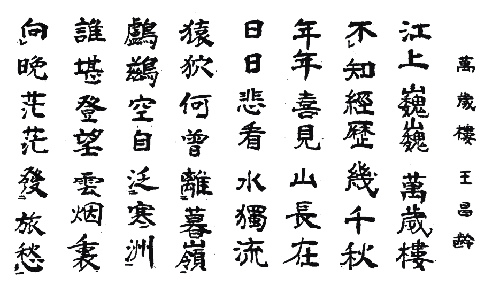 萬歲樓 王昌齡
江上巍巍萬歲樓
不知經歷幾千秋
年年喜見山長在
日日悲看水獨流
猿狖何曾離暮嶺
鸕鷀空自泛寒洲
誰堪登望雲烟裏
向晚茫茫發旅愁